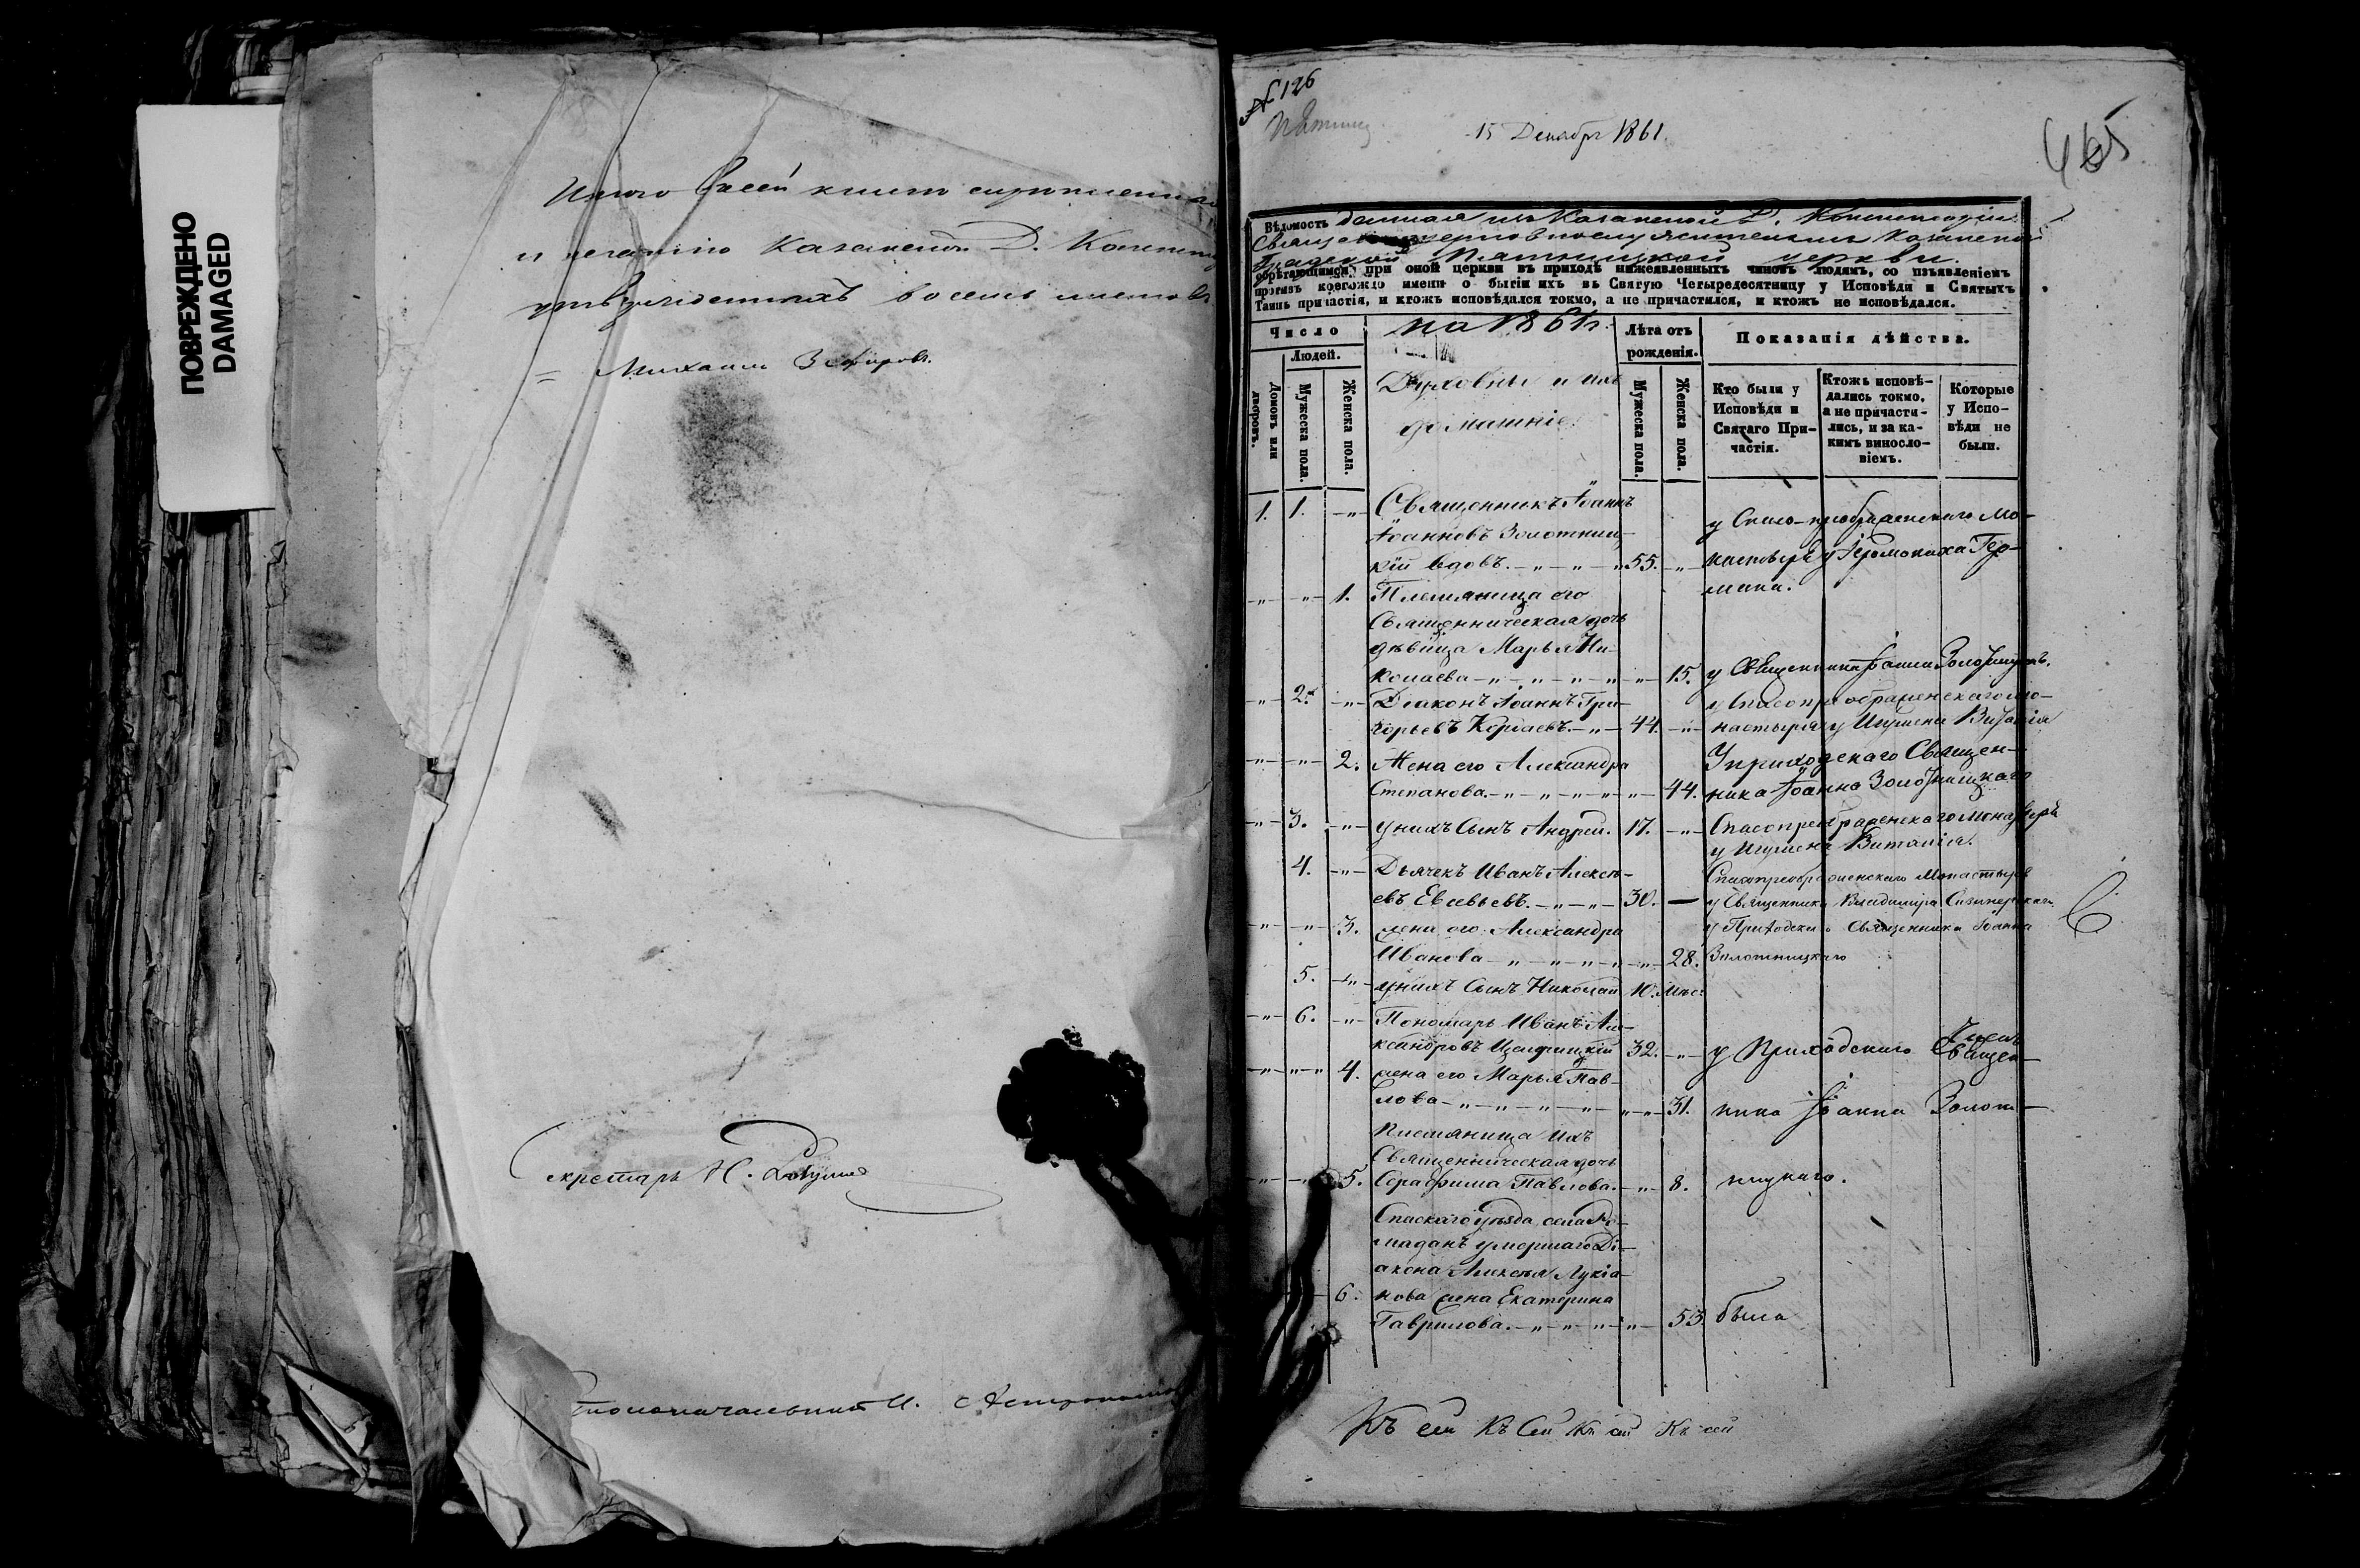 ПОВРЕЖДЕНО
DAMAGED
Итого в сей книге
и печатью Казанской Д.
восемь листовъ
Михаилъ Зефировъ.
Секретарь Н.
Столоначальникъ И.
№ 126
15 Декабря 1861.
465
Вѣдомость данная изъ Казанской Д. Консисторіи
церковнослужителямъ Казанской
Градской Пятницкой церкви.
обрѣтающимся при оной церкви въ приходѣ нижеявленныхъ чиновъ людямъ, со изъявленіемъ
противъ коегождо имени о бытіи ихъ въ Святую Четыредесятницу у Исповѣди и Святыхъ
Таинъ причастія, и ктожъ исповѣдался токмо, а не причастился, и ктожъ не исповѣдался.
Число
на 1861 г.
Лѣта отъ
рожденія.
Показанія дѣйства.
Людей.
Домовъ или
дворовъ.
Мужеска пола.
Женска пола.
Духовные и ихъ
домашніе.
Мужеска пола.
Женска пола.
Кто были у
Исповѣди и
Святаго При-
частія.
Ктожъ исповѣ-
дались токмо,
а не причасти-
лись, и за ка-
кимъ винословіемъ.
Которые
у Испо-
вѣди не
были.
1. 1. -"- Священникъ Іоаннъ
Іоанновъ Золотниц-
кій вдовъ. -"-"-" 55. -"-
у Спасо-преображенскаго Мо-
настыря у Іеромонаха Гер-
мана.
-"- -"- 1. Племяница его
Священническая дочь
дѣвица Марья Ни-
колаева -"-"-"-"- 15. у Священника Іоанна
-"- 2. -"- Діаконъ Іоаннъ Гри-
горьевъ -"- 44. -"-
у Спасопреображенскаго мо-
настыря у Игумена Виталія
-"- -"- 2. Жена его Александра
Степанова. -"-"-"-"- 44.
У приходскаго Священ-
ника Іоанна Золотницкаго
-"- 3. -"- у нихъ Сынъ Андрей. 17. -"- Спасопреображенскаго Монастыря
у Игумена Виталія.
4. -"- Дьячекъ Иванъ Алексѣ-
евъ Евсевьевъ. -"-"- 30. —
Спасопреображенскаго Монастыря
у Священника Владимира
-"- -"- 3. жена его Александра
Иванова -"-"-"-"- 28.
у Приходскаго Священника Іоанна
Золотницкаго
5. -"- у нихъ Сынъ Николай 10. мѣс.
-"- 6. -"- Пономарь Иванъ Але-
ксандровъ 32. -"- у Приходскаго Священ-
-"- -"-" 4. жена его Марья Пав-
лова -"-"-"-"- 31. ника Іоанна Золот-
Племяница ихъ
Священническая дочь
-"- -"- 5. Серафима Павлова. -"- 8. ницкаго.
Спаскаго уѣзда села
умершаго Ді-
акона Алексѣя Лукіа-
6. нова жена Екатерина
Гаврилова. -"-"-"-"- 53. была
Къ сей Къ Сей Къ сей Къ сей